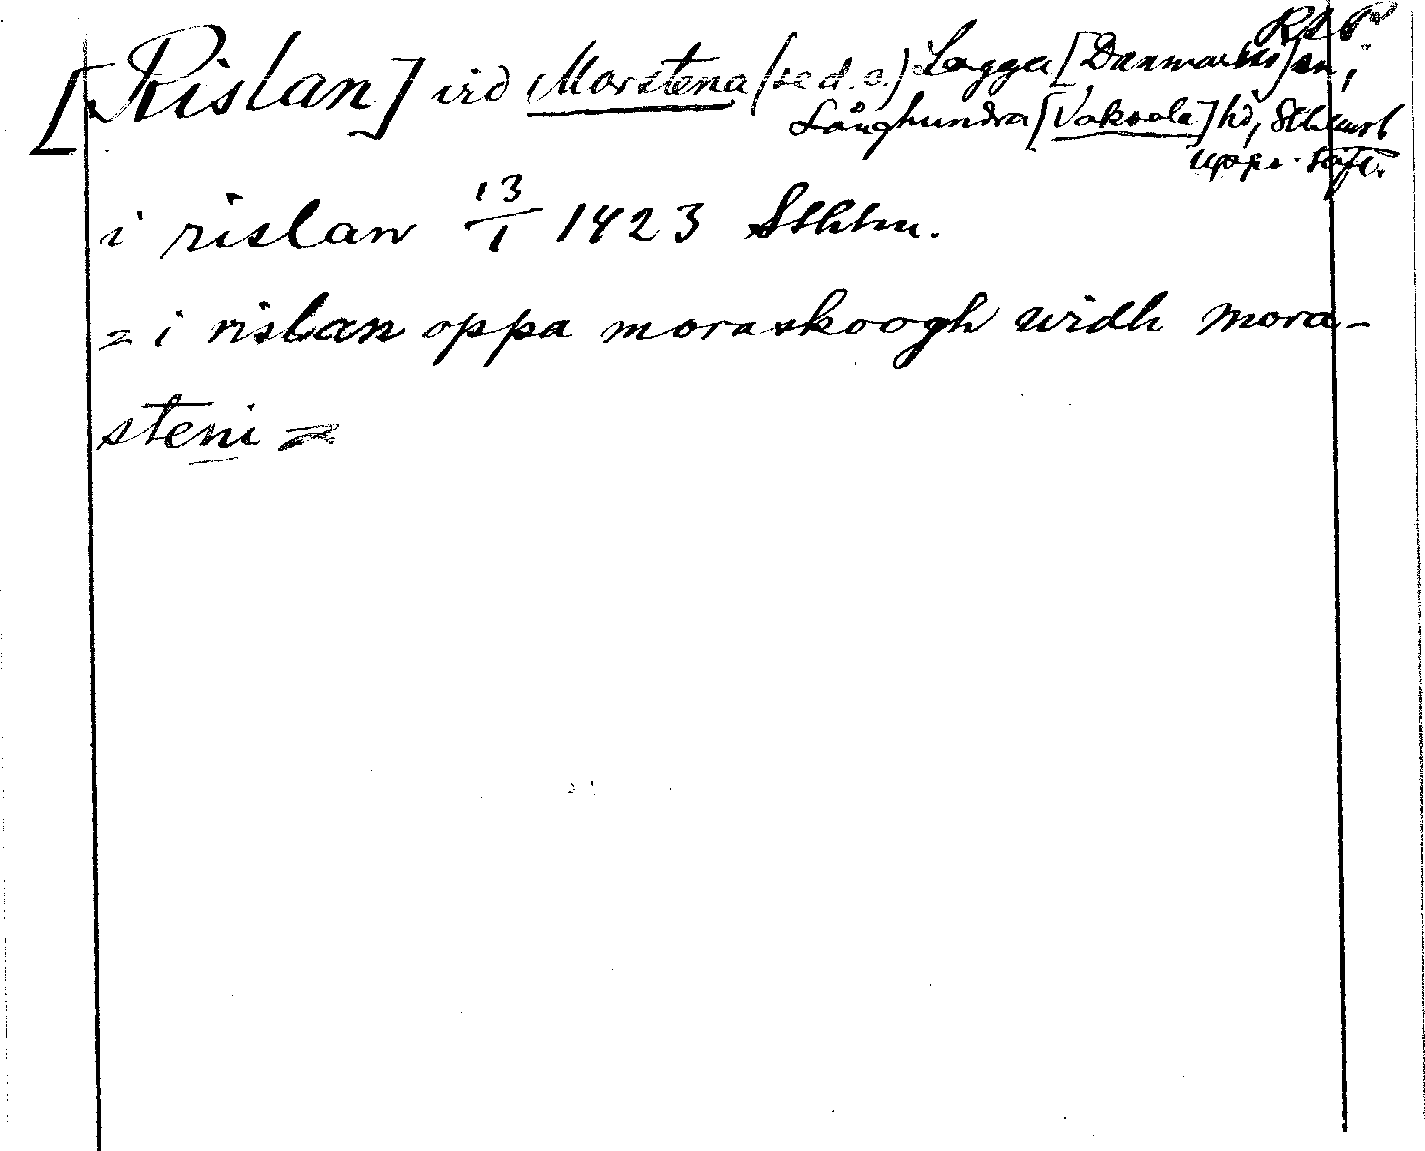 [Rislan] vid Morstena (se d. o.) Lagga [Danmarks] sn,
Långhundra [Vaksala] hd,
i rislan 13/1 1423 Sthlm.
= i rislan oppa moraskoogh widh mora-
steni =